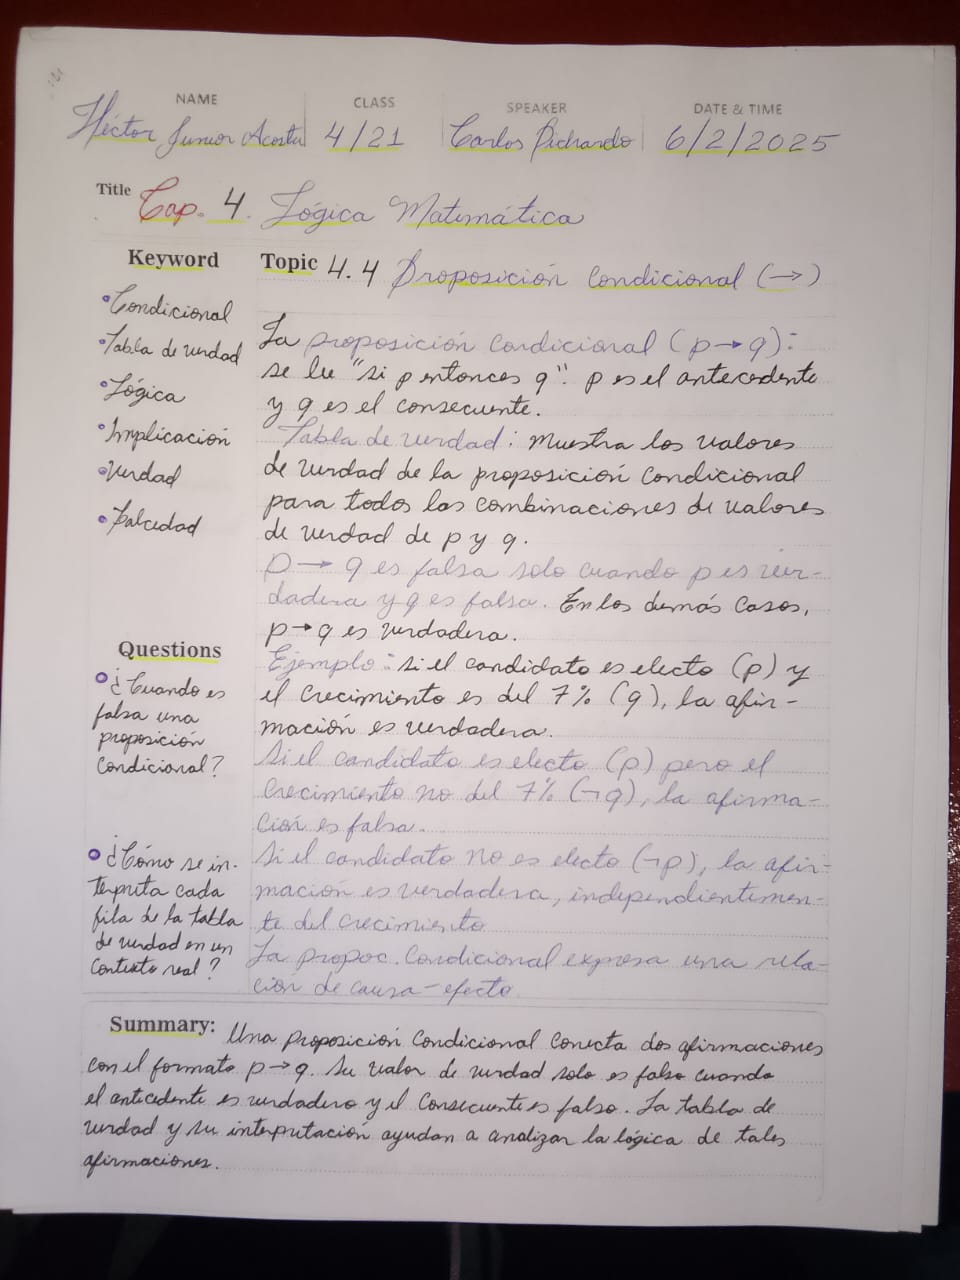 NAME CLASS SPEAKER DATE & TIME
Héctor Junior Acosta 4/21 Carlos Pichardo 6/2/2025
Title Cap. 4. Lógica Matemática
Keyword
• Condicional
• Tabla de verdad
• Lógica
• Implicación
• Verdad
• Falcedad
Questions
• ¿Cuando es
falsa una
proposición
condicional?
• ¿Cómo se in-
terpreta cada
fila de la tabla
de verdad en un
contexto real?
Topic 4.4 Proposición Condicional (→)
La proposición condicional (p→q):
se lee "si p entonces q". p es el antecedente
y q es el consecuente.
Tabla de verdad: Muestra los valores
de verdad de la proposición condicional
para todos las combinaciones de valores
de verdad de p y q.
p → q es falsa solo cuando p es ver-
dadera y q es falsa. En los demás casos,
p→q es verdadera.
Ejemplo: si el candidato es electo (p) y
el crecimiento es del 7% (q), la afir-
mación es verdadera.
Si el candidato es electo (p) pero el
crecimiento no del 7% (¬q), la afirma-
ción es falsa.
Si el candidato no es electo (¬p), la afir-
mación es verdadera, independientemen-
te del crecimiento.
La propoc. Condicional expresa una rela-
ción de causa-efecto.
Summary: Una proposición condicional conecta dos afirmaciones
con el formato p→q. Su valor de verdad solo es falso cuando
el antecedente es verdadero y el consecuente es falso. La tabla de
verdad y su interpretación ayudan a analizar la lógica de tales
afirmaciones.